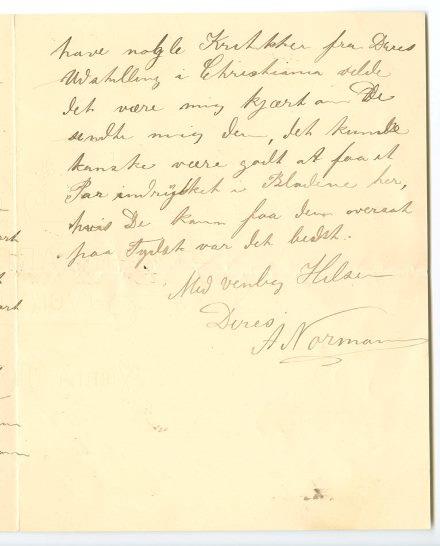 have nogle Kritikker fra Deres
Udstilling i Christiania vilde
det være mig kjært om De
sendte mig dem, det kunde
kanske være godt at faa et
Par indrykket i Bladene her,
hvis De kann faa dem oversat
paa Tydsk var det bedst.
Med venlig Hilsen
Deres
A Normann